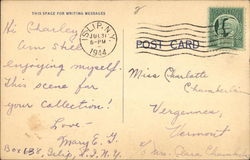 THIS SPACE FOR WRITING MESSAGES
ISLIP, N.Y.
JUL 31
6-PM
1944
POST CARD
Hi Charley,
Am still
enjoying myself.
This scene for
your collection!
Love,
Mary E. T.
Box 138, Islip, L.I. N.Y.
Miss Charlotte
Chamberlin
Vergennes,
Vermont
℅ Mrs.